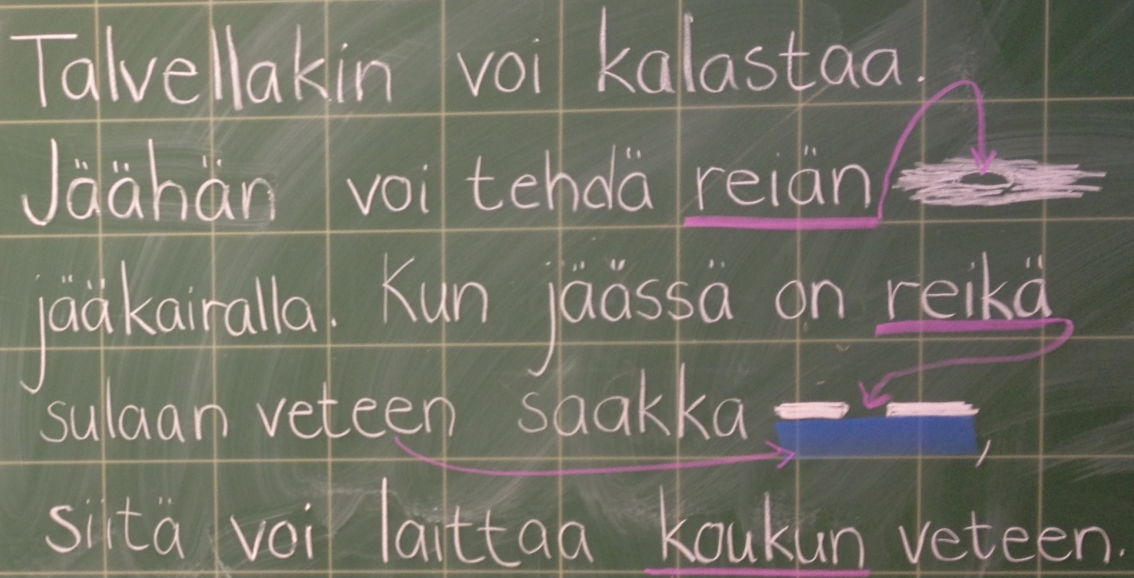 Talvellakin voi kalastaa.
Jäähän voi tehdä reiän
jääkairalla. Kun jäässä on reikä
sulaan veteen saakka,
siitä voi laittaa koukun veteen.